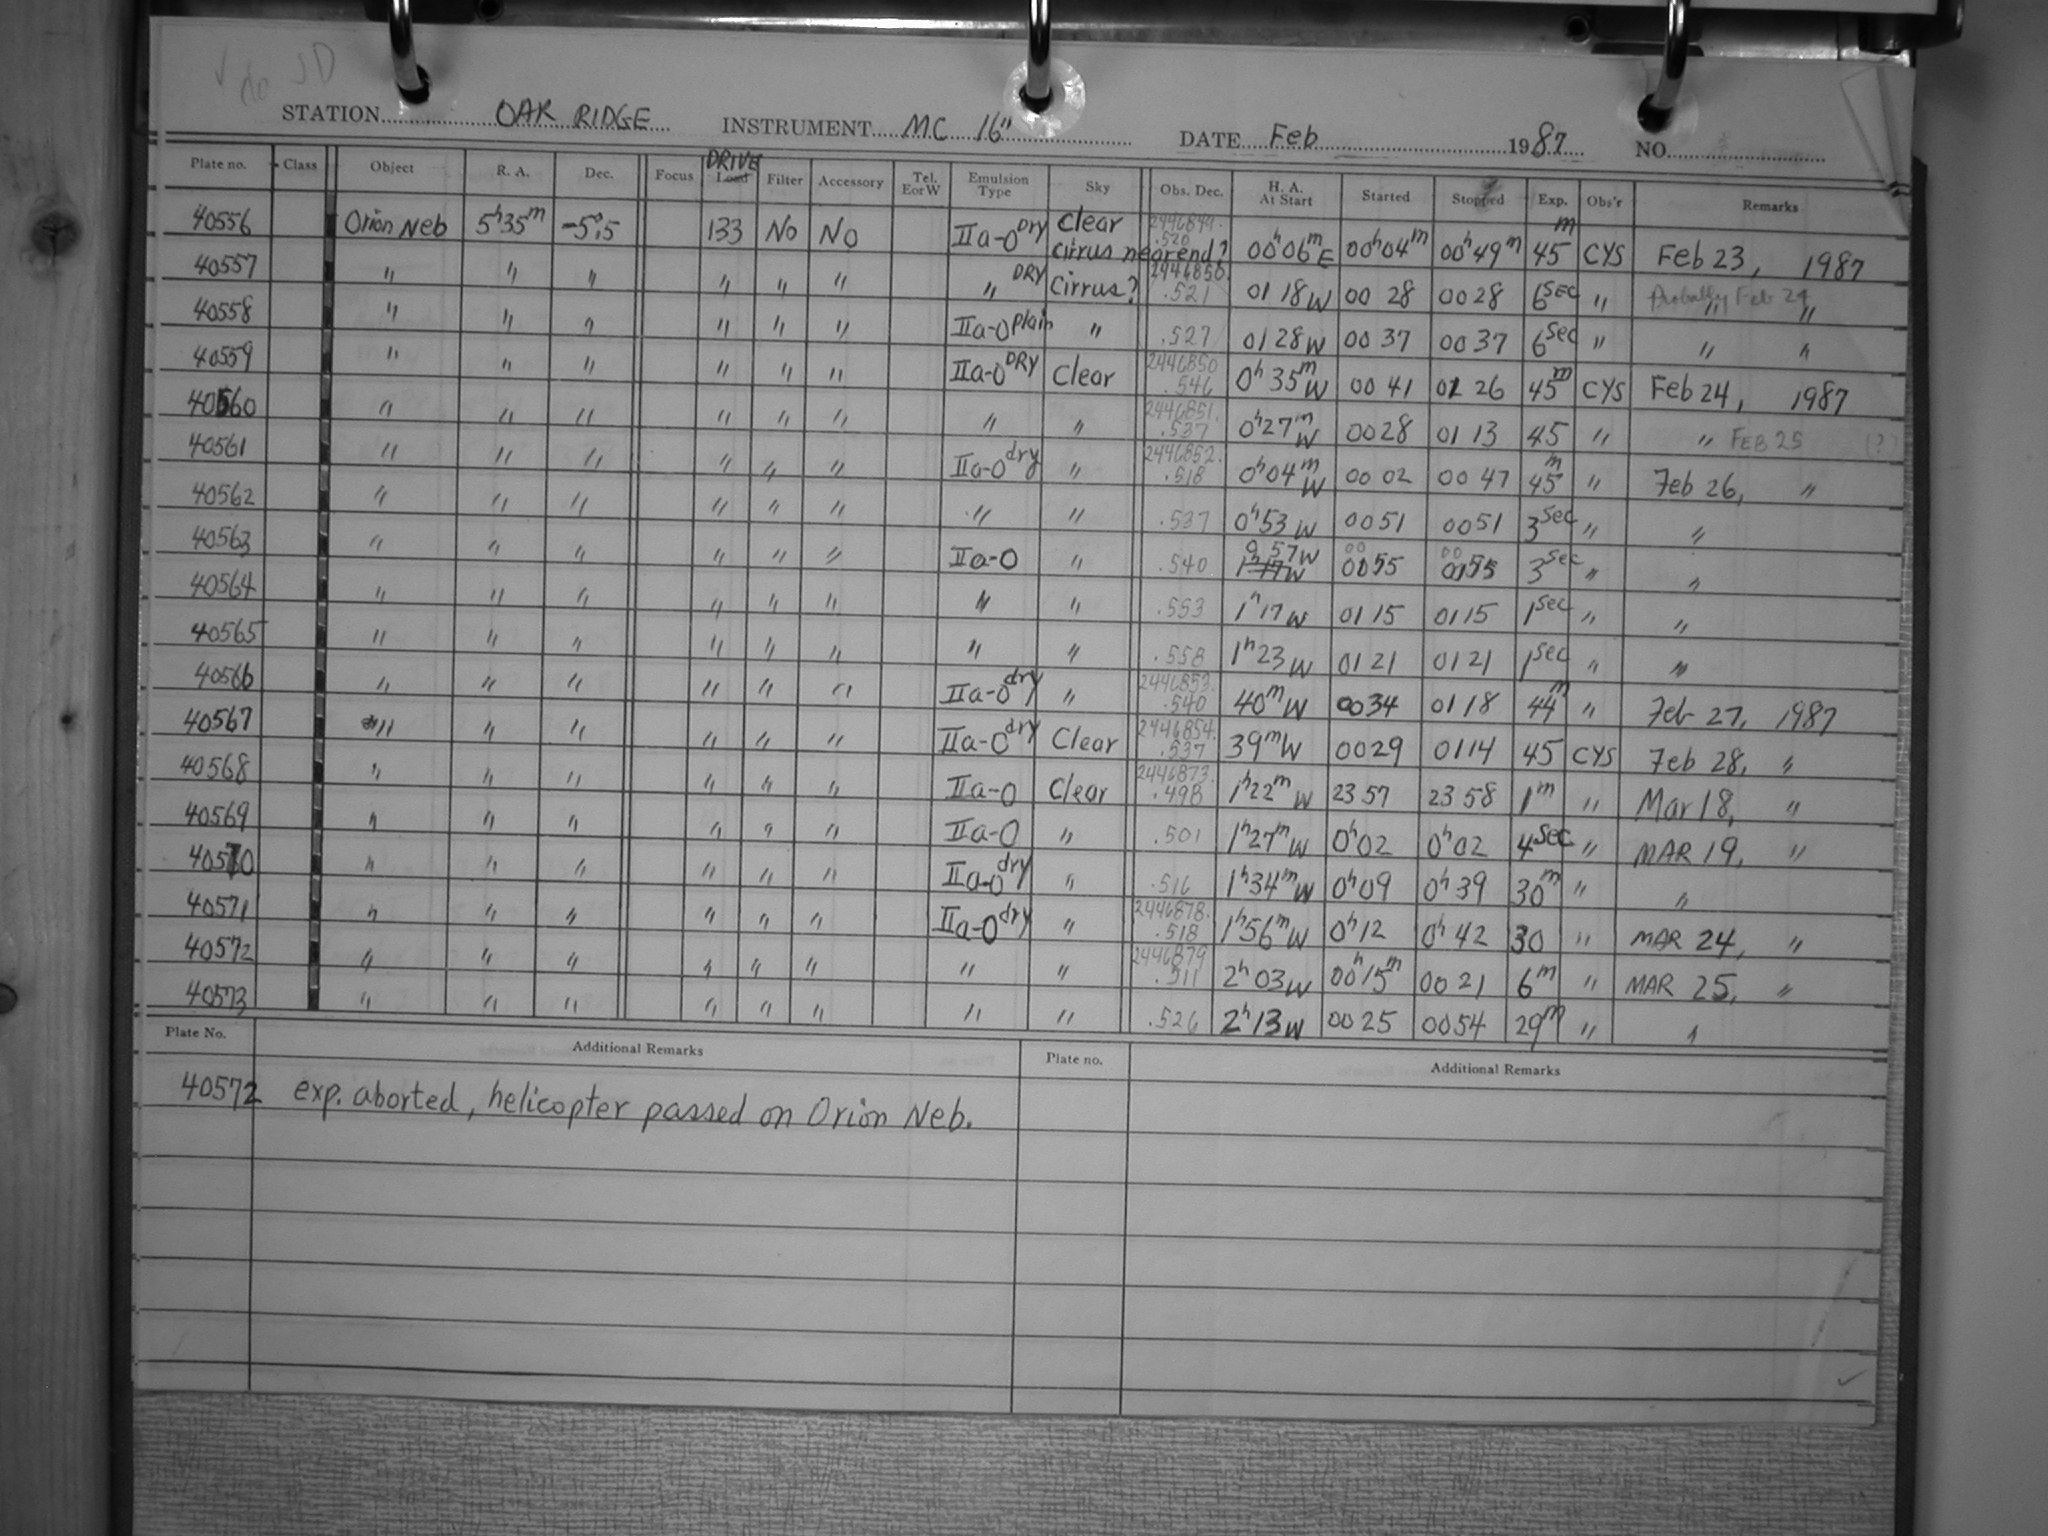 √ do JD
STATION OAK RIDGE INSTRUMENT MC 16" DATE Feb 1987 NO.
Plate no. Class Object R. A. Dec. Focus DRIVE Load Filter Accessory Tel. E or W Emulsion Type Sky Obs. Dec. H. A. At Start Started Stopped Exp. Obs'r Remarks
40556 Orion Neb 5h35m -5°.5 133 No No IIa-O Dry Clear cirrus near end? 2446849. .520 00h06mE 00h04m 00h49m 45m CYS Feb 23, 1987
40557 " " " " " " " DRY Cirrus? 2446850. .521 01 18W 00 28 00 28 6sec " Probably Feb 24 " "
40558 " " " " " " IIa-O plain " .527 01 28W 00 37 00 37 6sec " " "
40559 " " " " " " IIa-O DRY Clear 2446850 .546 0h35mW 00 41 01 26 45m CYS Feb 24, 1987
40560 " " " " " " " " 2446851. .537 0h27mW 00 28 01 13 45 " " FEB 25 (?)
40561 " " " " " " IIa-O dry " 2446852. .518 0h04mW 00 02 00 47 45m " Feb 26, "
40562 " " " " " " " " .537 0h53W 00 51 00 51 3sec " "
40563 " " " " " " IIa-O " .540 0 57W 00 55 00 55 3sec " "
40564 " " " " " " " " .553 1h17W 01 15 01 15 1sec " "
40565 " " " " " " " " .558 1h23W 01 21 01 21 1sec " "
40566 " " " " " " IIa-O dry " 2446853. .540 40mW 00 34 01 18 44m " Feb 27, 1987
40567 " " " " " " IIa-O dry Clear 2446854. .537 39mW 00 29 01 14 45 CYS Feb 28, "
40568 " " " " " " IIa-O Clear 2446873. .498 1h22mW 23 57 23 58 1m " Mar 18, "
40569 " " " " " " IIa-O " .501 1h27mW 0h02 0h02 4sec " MAR 19, "
40570 " " " " " " IIa-O dry " .516 1h34mW 0h09 0h39 30m " "
40571 " " " " " " IIa-O dry " 2446878. .518 1h56mW 0h12 0h42 30 " MAR 24, "
40572 " " " " " " " " 2446879 .511 2h03W 00h15m 00 21 6m " MAR 25, "
40573 " " " " " " " " .526 2h13W 00 25 00 54 29m " "
Plate No. Additional Remarks Plate no. Additional Remarks
40572 exp. aborted, helicopter passed on Orion Neb.